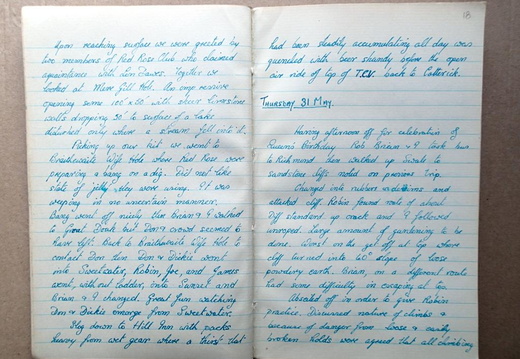 Upon reaching surface we were greeted by
two members of Red Rose Club who claimed
acquaintance with Jim Eaves. Together we
looked at Mere Gill Hole. An impressive
opening some 100' x 20' with sheer limestone
walls dropping 30' to surface of a lake
disturbed only where a stream fell into it.
Picking up our kit we went to
Braithwaite Wife Hole where Red Rose were
preparing a bang on a dig. Did not like
state of jelly they were using. It was
weeping in no uncertain manner.
Bang went off nicely then Brian & I walked
to Great Douk but Don's crowd seemed to
have left. Back to Braithwaite Wife Hole to
contact Don then Don & Dickie went
into Sweetwater, Robin, Joe, and James
went, without ladder, into Sunset and
Brian & I changed. Great fun watching
Don & Dickie emerge from Sweetwater.
Slog down to Hill Inn with packs
heavy from wet gear where a thirst that
18.
had been steadily accumulating all day was
quenched with beer shandy before the open
air ride of top of T.C.V. back to Catterick.
THURSDAY 31 MAY.
Having afternoon off for celebration of
Queen's Birthday Rob Brian & I took bus
to Richmond then walked up Swale to
sandstone cliffs noted on previous trip.
Changed into rubbers and
attacked cliff. Robin found route of about
Diff standard up crack and I followed
unroped. Large amount of gardening to be
done. Worst on the get off at top where
cliff turned into 60° slopes of loose
powdery earth. Brian, on a different route
had some difficulty in escaping at top.
Abseiled off in order to give Robin
practice. Discussed nature of climbs &
because of danger from loose & easily
broken holds were agreed that all climbing